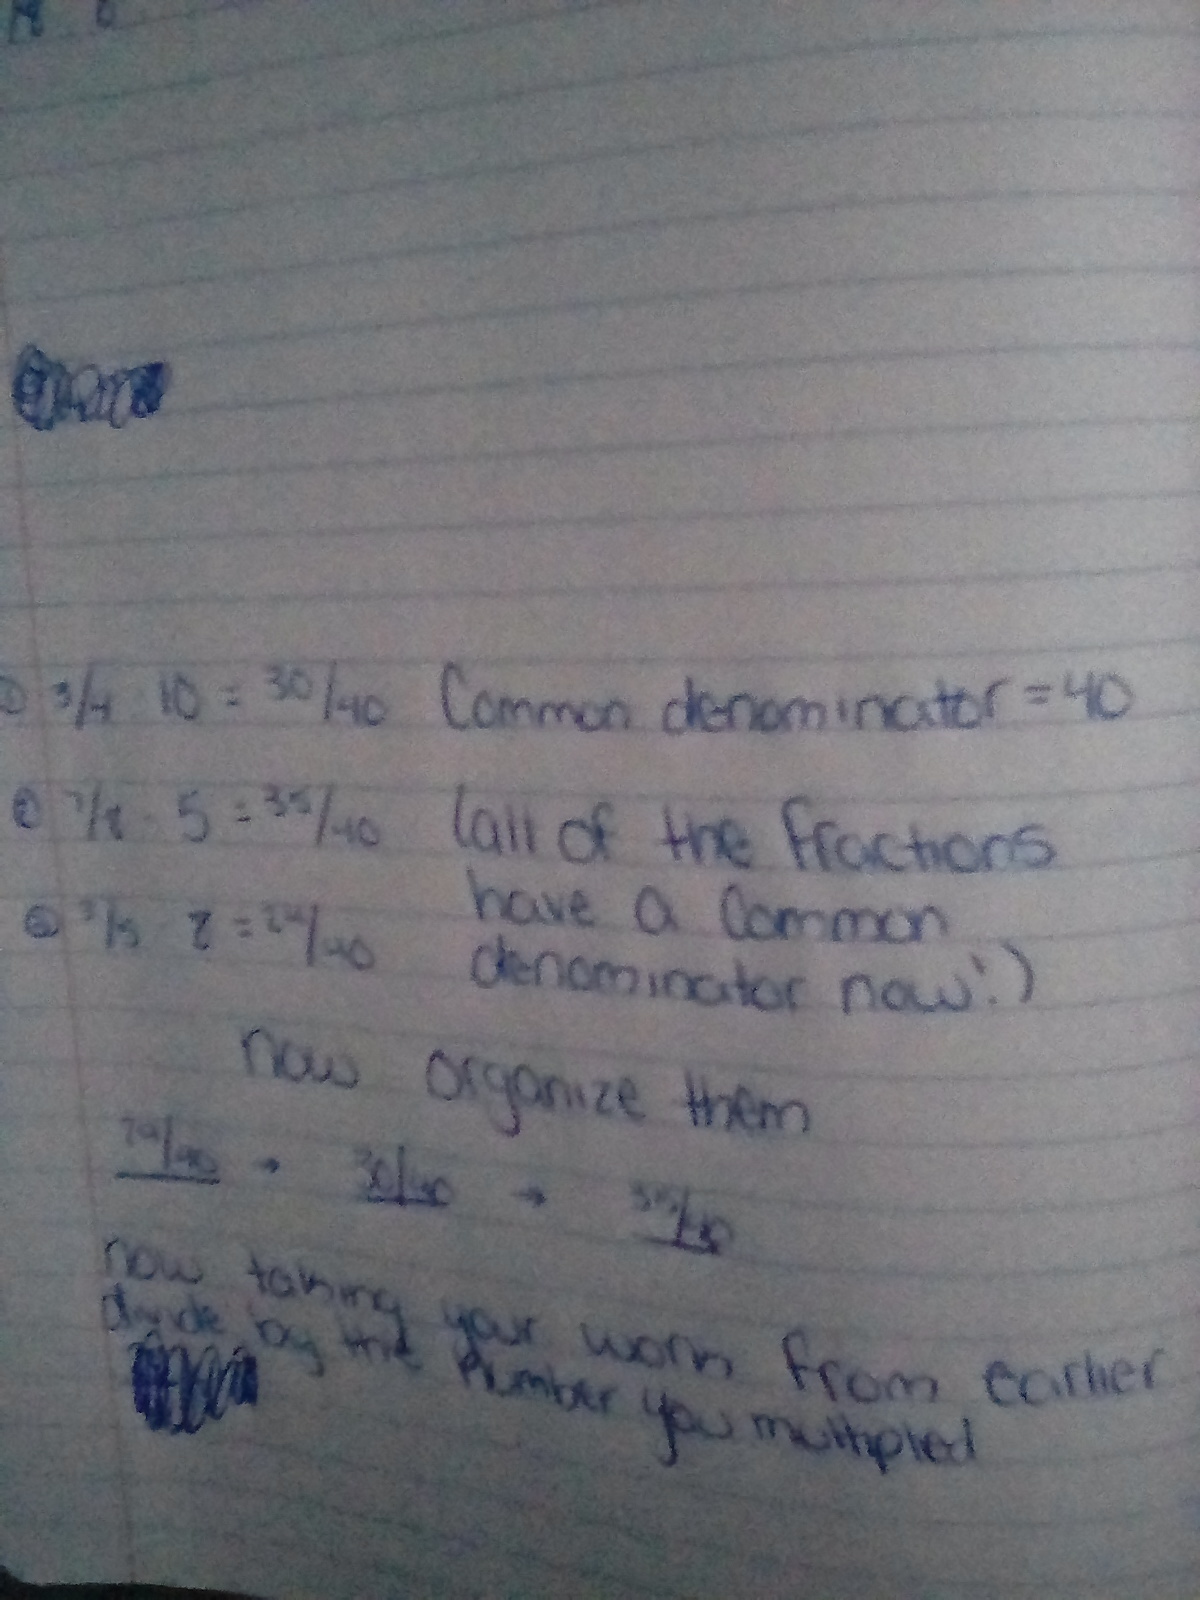 ① 3/4 · 10 = 30/40 Common denominator = 40
② 7/8 · 5 = 35/40 (all of the fractions
have a common
③ 3/5 8 = 24/40 denominator now!)
now organize them
24/40 → 30/40 → 35/40
now taking your work from earlier
divide by the number you multiplied